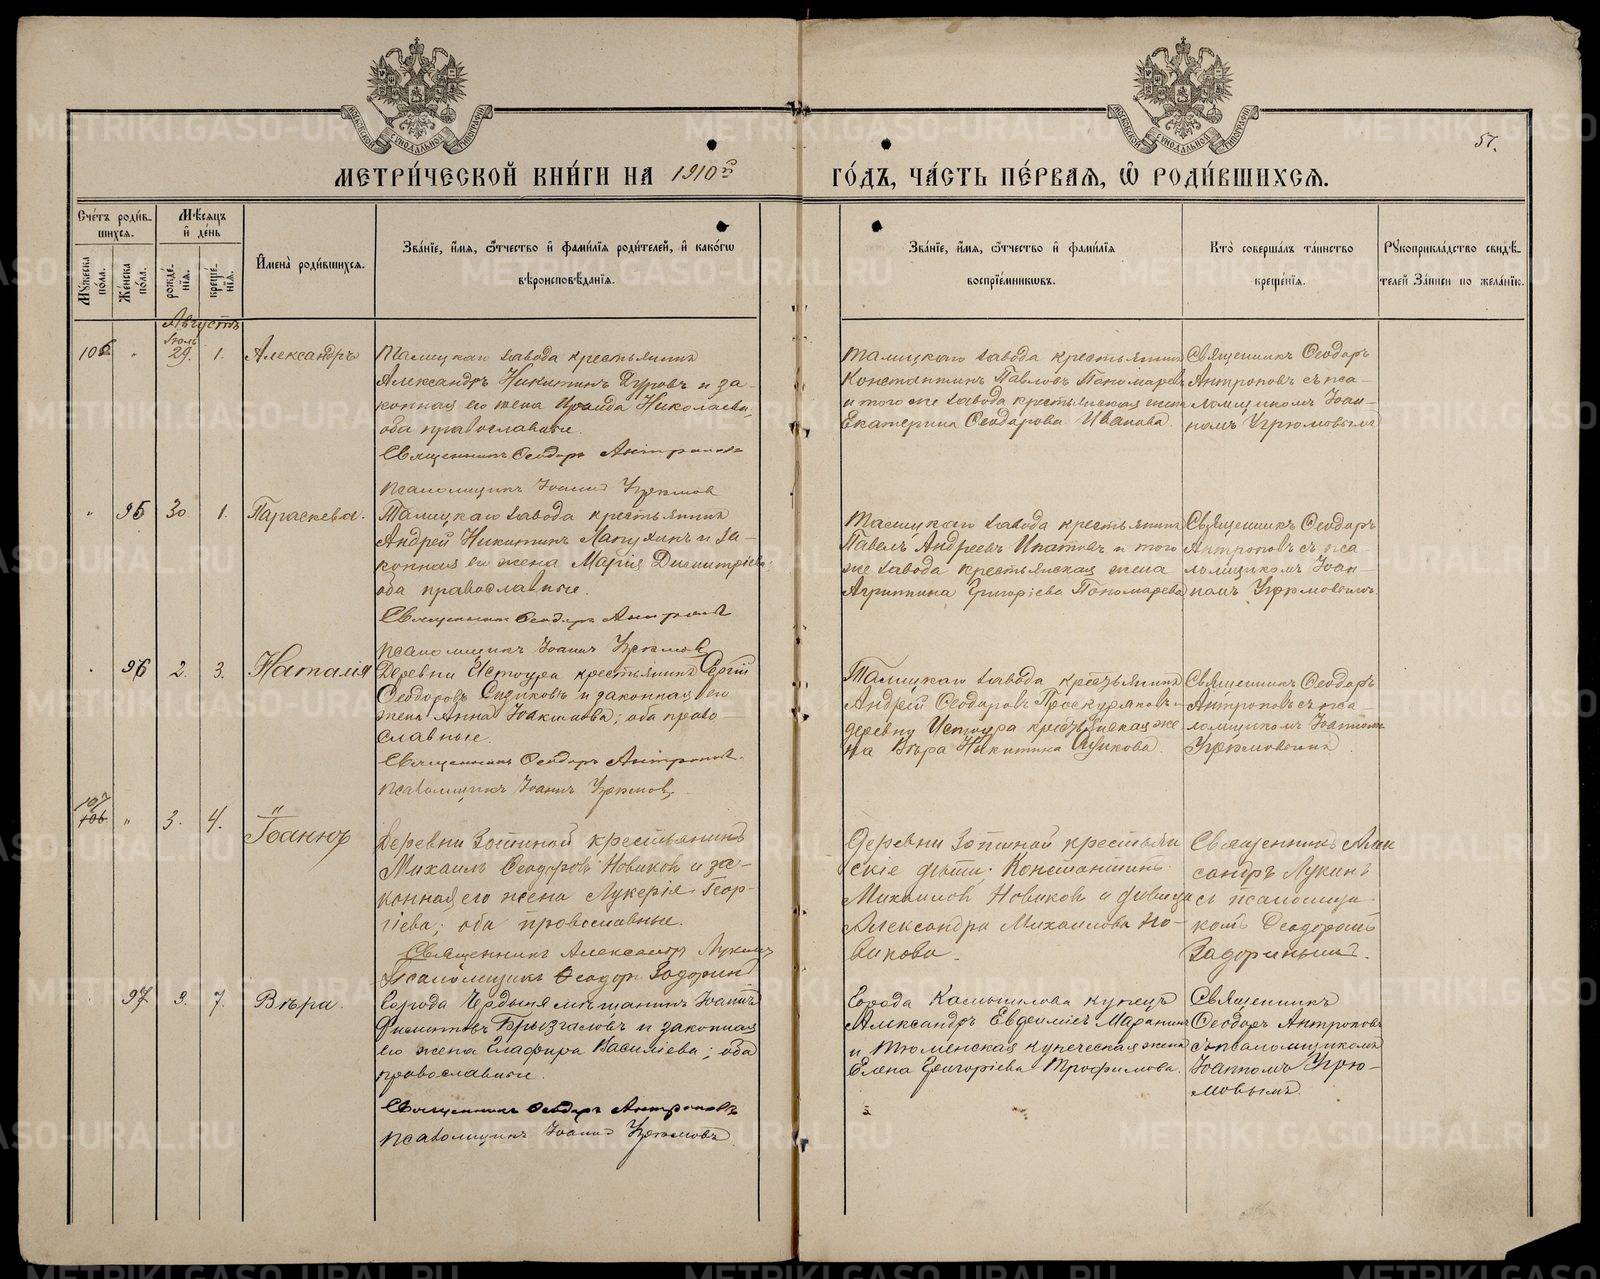 57.
МЕТРИ́ЧЕСКОЙ КНИ́ГИ НА 1910й ГО́ДЪ, ЧА́СТЬ ПЕ́РВАЯ, Ѿ РОДИ́ВШИХСЯ.
Сче́тъ роди́в-
шихся.
Му́жеска по́ла.
Же́нска по́ла.
Мѣ́сяцъ
и҆ де́нь
рожде́-
нїя.
креще́-
нїя.
И҆мена̀ роди́вшихся.
Зва́нїе, и҆́мя, ѻ҆́тчество и҆ фами́лїя роди́телей, и҆ како́гѡ
вѣроисповѣ́данїя.
Зва́нїе, и҆́мя, ѻ҆́тчество и҆ фами́лїя
воспрїе́мниковъ.
Кто̀ соверша́лъ та́инство
креще́нїя.
Рꙋкоприкла́дство свидѣ́-
телей За́писи по жела́нїю.
Августъ
Іюль
106 " 29. 1. Александръ
Талицкаго завода крестьянинъ
Александръ Никитинъ и за-
конная его жена Николаева,
оба православные.
Священникъ Ѳеодоръ Антроповъ
псаломщикъ Іоаннъ Угрюмов
Талицкаго завода крестьянинъ
Константинъ Павловъ Пономаревъ
и того же завода крестьянская жена
Екатерина Ѳеодорова Иванова.
Священникъ Ѳеодоръ
Антроповъ съ пса-
ломщикомъ Іоан-
номъ Угрюмовымъ
" 95 30. 1. Параскева.
Талицкаго завода крестьянинъ
Андрей Никитинъ Лапухинъ и за-
конная его жена Марія Димитріева;
оба православные.
Священникъ Ѳеодоръ Антроповъ
псаломщикъ Іоаннъ Угрюмов
Талицкаго завода крестьянинъ
Павелъ Андреевъ Ипатовъ и того
же завода крестьянская жена
Агриппина Григоріева Пономарева
Священникъ Ѳеодоръ
Антроповъ съ пса-
ломщикомъ Іоан-
номъ Угрюмовымъ.
96 2. 3. Наталія
Деревни Истоура крестьянинъ Сергій
Ѳеодоровъ и законная его
жена Анна Іоакимова; оба право-
славные.
Священникъ Ѳеодоръ Антроповъ.
псаломщикъ Іоаннъ Угрюмов.
Талицкаго завода крестьянинъ
Андрей Ѳеодоровъ Проскуряковъ.
деревни Истоура крестьянская же
на Вѣра Никитина
Священникъ Ѳеодоръ
Антроповъ съ пса-
ломщикомъ Іоанномъ
Угрюмовымъ.
107
106. " 3. 4. Іоаннъ
Деревни Зотиной крестьянинъ
Михаилъ Ѳеодоровъ Новиковъ и за-
конная его жена Лукерія Геор-
гіева; оба православные.
Священникъ Александръ Лукинъ
Псаломщикъ Ѳеодоръ Задоринъ
Деревни Зотиной крестьян
скіе дѣти: Константинъ
Михаилов Новиковъ и дѣвица
Александра Михаилова Но-
викова.
Священникъ Алек
сандръ Лукинъ
съ псаломщи
комъ Ѳеодоромъ
Задоринымъ.
97 3. 7. Вѣра.
Города Чердыня мѣщанинъ Іоаннъ
Филиповъ Брызгаловъ и законная
его жена Глафира Василіева; оба
православные.
Священникъ Ѳеодоръ Антроповъ
псаломщикъ Іоаннъ Угрюмовъ
Города Камышлова купецъ
Александръ Евфиміевъ
и Тюменская купеческая жена
Елена Григоріева Трофимова.
Священникъ
Ѳеодоръ Антроповъ
съ псаломщикомъ
Іоанномъ Угрю-
мовымъ.
METRIKI.GASO-URAL.RU